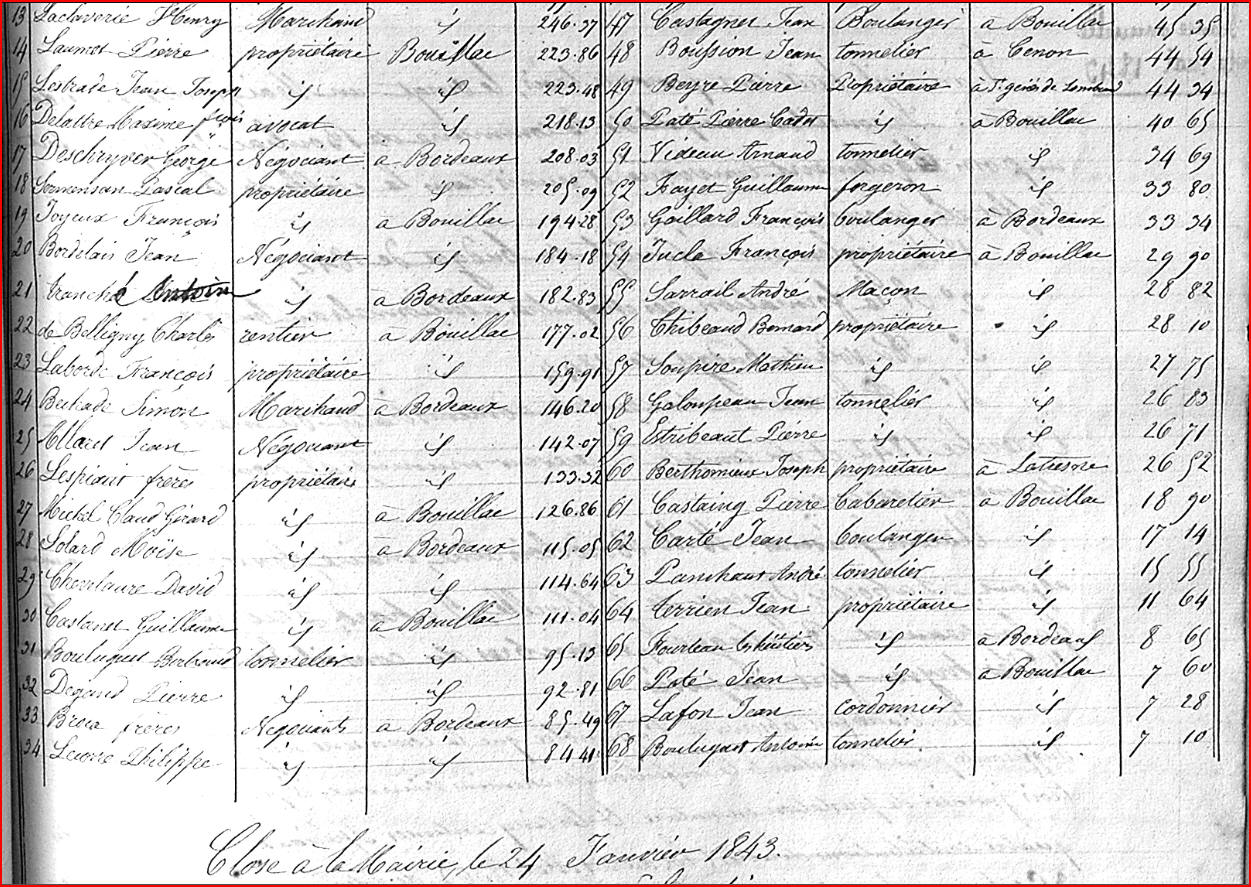 13 Laclaverie Henry Marchand id 246.37
14 Laumet Pierre propriétaire Bouillac 223.86
15 Lestrade Jean Joseph id id 223.48
16 Delattre Maxime avocat id 218.13
17 Deschryver George Négociant à Bordeaux 208.03
18 Sermensan Pascal propriétaire id 205.09
19 Joyeux François id à Bouillac 194.28
20 Bordelais Jean Négociant id 184.18
21 tranché Antoin id à Bordeaux 182.83
22 de Belligny Charles rentier à Bouillac 177.02
23 Laborde François propriétaire id 159.91
24 Simon Marchand à Bordeaux 146.20
25 Allard Jean Négociant id 142.07
26 Lespiaut frères propriétaire id 133.32
27 Michel Claud Girard id à Bouillac 126.86
28 Solard Moïse id à Bordeaux 115.05
29 David id id 114.64
30 Castanet Guillaume id à Bouillac 111.04
31 Bouluguet Bertrand tonnelier id 95.13
32 Degand Pierre id id 92.81
33 frères Négociants à Bordeaux 85.49
34 Philippe id id 84.41
47 Castagnet Jean Boulanger à Bouillac 45 35
48 Boussion Jean tonnelier à Cenon 44 54
49 Beyre Pierre Propriétaire 44 34
50 Paté Pierre Cadet id à Bouillac 40 65
51 Videau Arnaud tonnelier id 34 69
52 Fayet Guillaume forgeron id 33 80
53 Gaillard François boulanger à Bordeaux 33 34
54 Jucla François propriétaire à Bouillac 29 90
55 Sarrail André Maçon id 28 82
56 Thibeaud Bernard propriétaire id 28 10
57 Soupire Mathieu id id 27 75
58 Galoupeau Jean tonnelier id 26 83
59 Estribeaut Pierre id id 26 71
60 Berthomieux Joseph propriétaire à Latresne 26 52
61 Castaing Pierre Cabaretier à Bouillac 18 90
62 Carté Jean boulanger id 17 14
63 Panchaut André tonnelier id 15 55
64 terrien Jean propriétaire id 11 64
65 Fourteau id à Bordeaux 8 65
66 Paté Jean id à Bouillac 7 60
67 Lafon Jean cordonnier id 7 28
68 Bouluguet Antoine tonnelier id 7 10
Close à la Mairie, le 24 Janvier 1843.